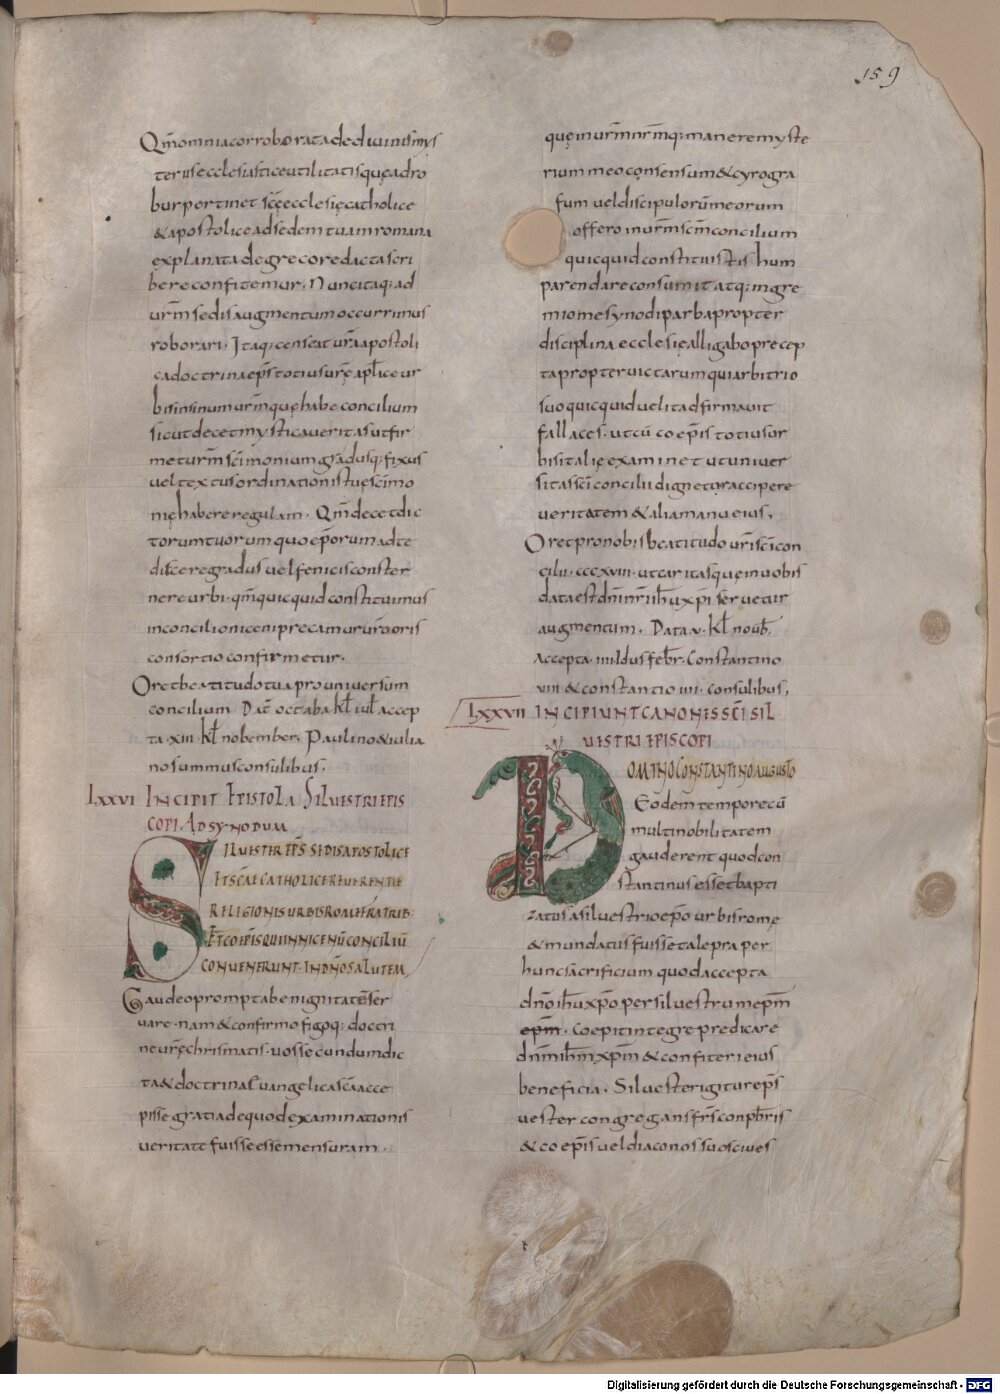 159
Qm̅ omnia corroborata de diuinis mys
teriis ecclesiastice utilitatis quę ad ro
bur pertinet sc̅ę ecclesię catholice
& apostolice ad sedem tuam romana
explanata de greco redacta scri
bere confitemur. Nunc itaq; ad
urm̅ sedis augmentum occurrimus
roborari. Itaq; censeat ur̅a apostoli
ca doctrina ep̅s totius ur̅ę ap̅lice ur
bis in sinum urm̅ quę habe concilium
sicut decet mystica ueritas ut fir
me turm̅ sc̅imonium gradusq; fixus
uel textus ordinationis tuę sc̅imo
nię habere regulam. Qm̅ decet dic
torum tuorum quo ep̅orum ad te
discere gradus uel fenicis conster
nere urbi. qm̅ quicquid constituimus
in concilio niceni precamur ur̅i oris
consortio confirmetur.
Oret beatitudo tua pro uniuersum
concilium. Dat̅ octaba kl̅ iul̅ accep
ta xiii kl̅ nobember. Paulino & iulia
no summus consulibus.
LXXVI INCIPIT EPISTOLA SILUESTRI EPIS
COPI. AD SYNODUM
SILUESTER EP̅S SEDIS APOSTOLICE
ET SC̅AE CATHOLICE REUERENTIE
RELIGIONIS URBIS ROME FRATRIB:
ET COEP̅IS QUI IN NICENU̅ CONCILIU̅
CONUENERUNT. IN DN̅O SALUTEM
Gaudeo prompta benignitate̅ ser
uare. nam & confirmo figoq; doctri
ne ur̅ę chrismatis. uos secundum dic
ta & doctrina euangelica sc̅a acce
pisse gratia de quod examinationis
ueritate fuisse esse mensuram.
quę in urm̅ nrm̅q; manere myste
rium meo consensum & cyrogra
fum uel discipuloru̅ meorum
offero in urm̅ sc̅m concilium
quicquid constituistis hum
parem dare consumit atq; in gre
mio me synodi parba propter
disciplina ecclesię alligabo precep
ta propter uictarum qui arbitrio
suo quicquid uelit adfirmauit
fallaces. ut cu̅ coep̅is totius ur
bis italię examinet ut uniuer
sitas sc̅i concilii dignetur accipere
ueritatem & alia manu eius.
Oret pro nobis beatitudo ur̅i sc̅i con
cilii. cccxviii. ut caritas que in uobis
data est dn̅i nr̅i ih̅u xp̅i seruetur
augmentum. Data v. kl̅ noub̅.
Accepta. iiii Idus febr̅. Constantino
viii & constantio iiii. consulibus.
LXXVII INCIPIUNT CANONES SC̅I SIL
UESTRI EPISCOPI
DOMINO CONSTANTINO AUGUSTO
Eodem tempore cu̅
multi nobilitatem
gauderent quod con
stantinus esset bapti
zatus a siluestrio ep̅o urbis rome
& mundatus fuisset a lepra per
hunc sacrificium quod accepta
dn̅o ih̅u xp̅o per siluestrum ep̅m
ep̅m. Coepit integre predicare
dn̅m ih̅m xp̅m & confiteri eius
beneficia. Siluester igitur ep̅s
uester congregans fr̅s conpb̅ris
& coep̅is uel diaconos suos ciues
Digitalisierung gefördert durch die Deutsche Forschungsgemeinschaft - DFG